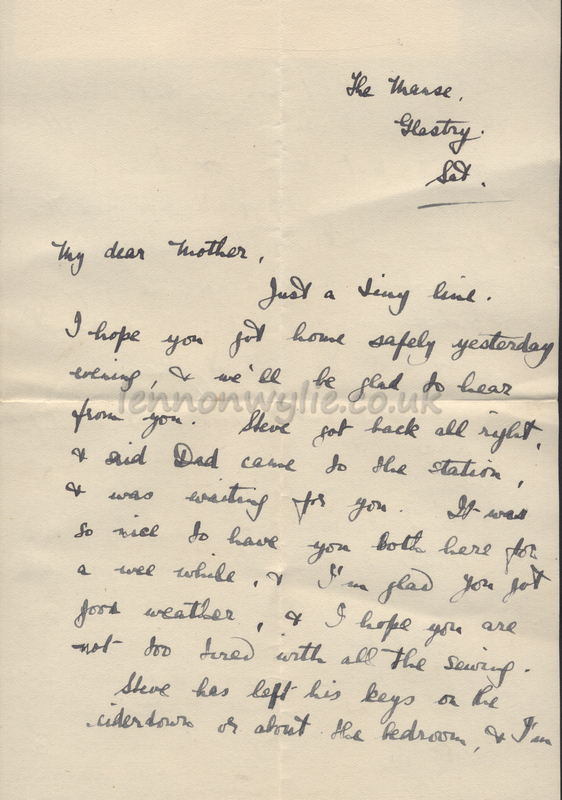 The Manse,
Glastry.
Sat.
My dear Mother,
Just a tiny line.
I hope you got home safely yesterday
evening, & we'll be glad to hear
lennonwylie.co.uk
from you. Steve got back all right,
& said Dad came to the station,
& was waiting for you. It was
so nice to have you both here for
a wee while, & I'm glad you got
good weather, & I hope you are
not too tired with all the sewing.
Steve has left his keys on the
eiderdown or about the bedroom, & I'm